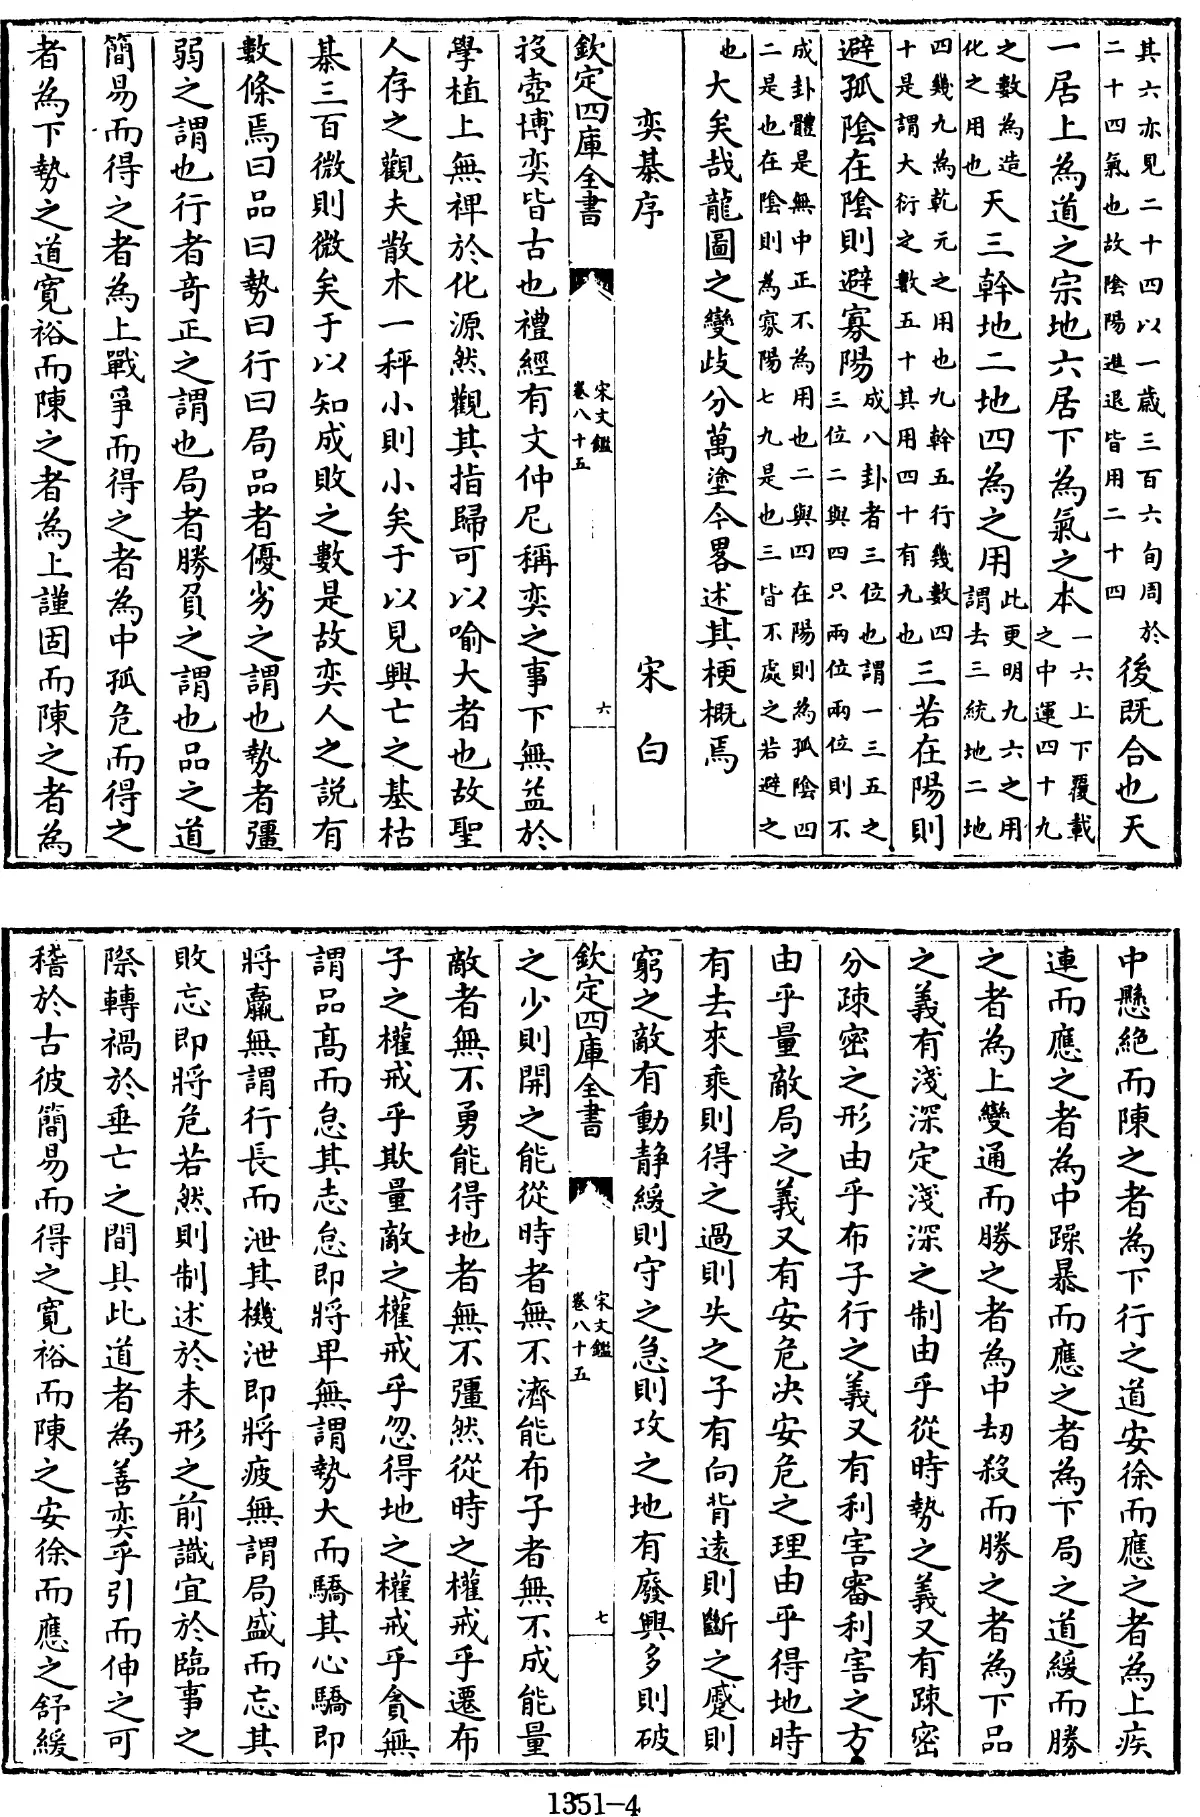 其六亦見二十四以一歲三百六旬周於
二十四氣也故陰陽進退皆用二十四
後既合也天
一居上為道之宗地六居下為氣之本
一六上下覆載
之中運四十九
之數為造
化之用也
天三幹地二地四為之用
此更明九六之用
謂去三統地二地
四幾九為乾元之用也九幹五行幾數四
十是謂大衍之數五十其用四十有九也
三若在陽則
避孤陰在陰則避寡陽
成八卦者三位也謂一三五之
三位二與四只兩位兩位則不
成卦體是無中正不為用也二與四在陽則為孤陰四
二是也在陰則為寡陽七九是也三皆不處之若避之
也
大矣哉龍圖之變歧分萬塗今畧述其梗概焉
奕棊序
宋白
欽定四庫全書
宋文鑑
卷八十五
六
投壺博奕皆古也禮經有文仲尼稱奕之事下無益於
學植上無裨於化源然觀其指歸可以喻大者也故聖
人存之觀夫散木一枰小則小矣于以見興亡之基枯
棊三百微則微矣于以知成敗之數是故奕人之說有
數條焉曰品曰勢曰行曰局品者優劣之謂也勢者彊
弱之謂也行者奇正之謂也局者勝負之謂也品之道
簡易而得之者為上戰爭而得之者為中孤危而得之
者為下勢之道寬裕而陳之者為上謹固而陳之者為
中懸絕而陳之者為下行之道安徐而應之者為上疾
連而應之者為中躁暴而應之者為下局之道緩而勝
之者為上變通而勝之者為中刧殺而勝之者為下品
之義有淺深定淺深之制由乎從時勢之義又有踈密
分踈密之形由乎布子行之義又有利害審利害之方
由乎量敵局之義又有安危決安危之理由乎得地時
有去來乘則得之過則失之子有向背遠則斷之蹙則
窮之敵有動静緩則守之急則攻之地有廢興多則破
欽定四庫全書
宋文鑑
卷八十五
七
之少則開之能從時者無不濟能布子者無不成能量
敵者無不勇能得地者無不彊然從時之權戒乎遷布
子之權戒乎欺量敵之權戒乎忽得地之權戒乎貪無
謂品高而怠其志怠即將卑無謂勢大而驕其心驕即
將羸無謂行長而泄其機泄即將疲無謂局盛而忘其
敗忘即將危若然則制述於未形之前識宜於臨事之
際轉禍於垂亡之間具此道者為善奕乎引而伸之可
稽於古彼簡易而得之寬裕而陳之安徐而應之舒緩
1351-4